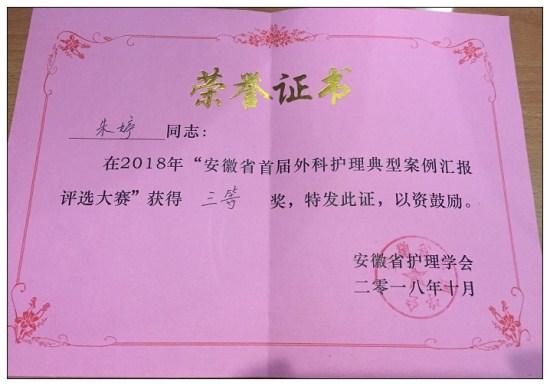 荣誉证书
朱婷同志：
在2018年“安徽省首届外科护理典型案例汇报
评选大赛”获得 三等 奖，特发此证，以资鼓励。
安徽省护理学会
二零一八年十月